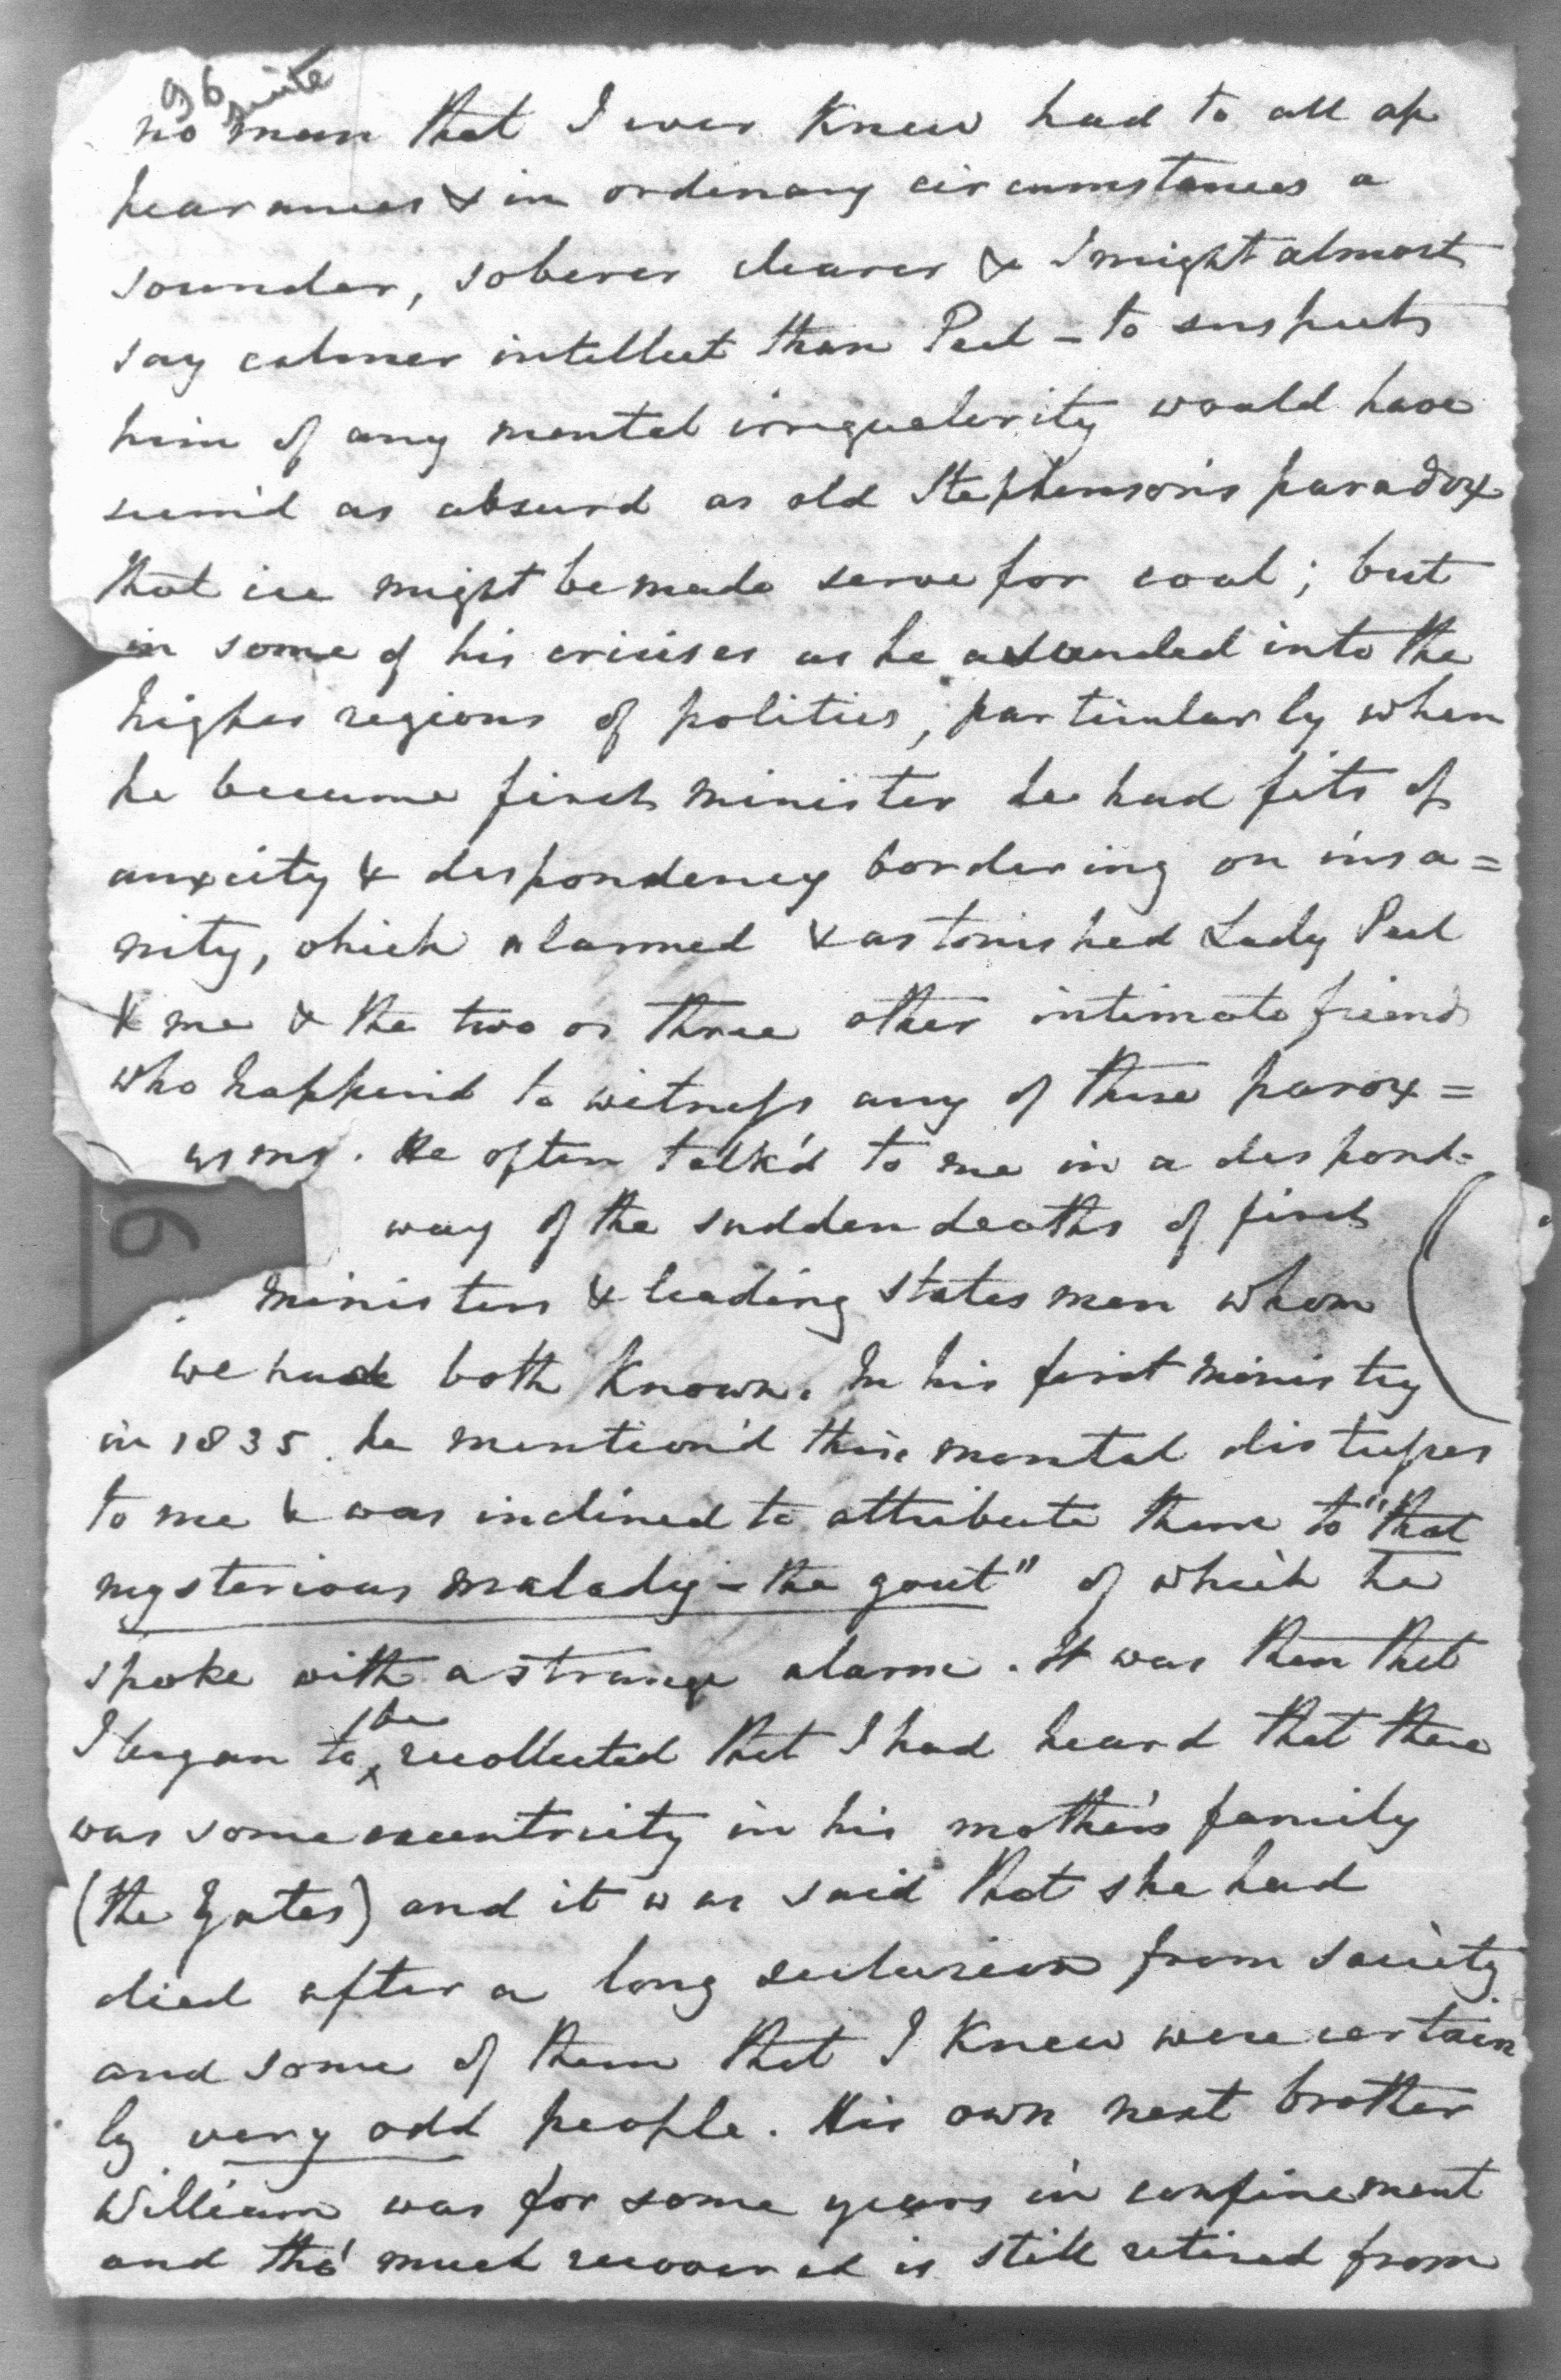 96 suite
no man that I ever knew had to all ap
pearances & in ordinary circumstances a
sounder, soberer clearer & I might almost
say calmer intellect than Peel – to suspect
him of any mental irregularity would have
seem'd as absurd as old Stephenson's paradox
that ice might be made serve for coal; but
in some of his crisises as he ascended into the
higher regions of politics, particularly when
he became first minister he had fits of
anxiety & despondency bordering on insa=
nity, which alarmed & astonished Lady Peel
& me & the two or three other intimate friends
who happen'd to witness any of these parox=
isms. He often talk'd to me in a despond=
way of the sudden deaths of first
ministers & leading statesmen whom
we had both known. In his first ministry
in 1835. he mention'd these mental distresses
to me & was inclined to attribute them to "that
mysterious malady – the gout" of which he
spoke with a strange alarm. It was then that
I began to be recollected that I had heard that there
was some excentricity in his mother's family
(the Yates) and it was said that she had
died after a long seclusion from society
and some of them that I knew were certain
ly very odd people. His own next brother
William was for some years in confinement
and tho' much recovered is still retired from
6